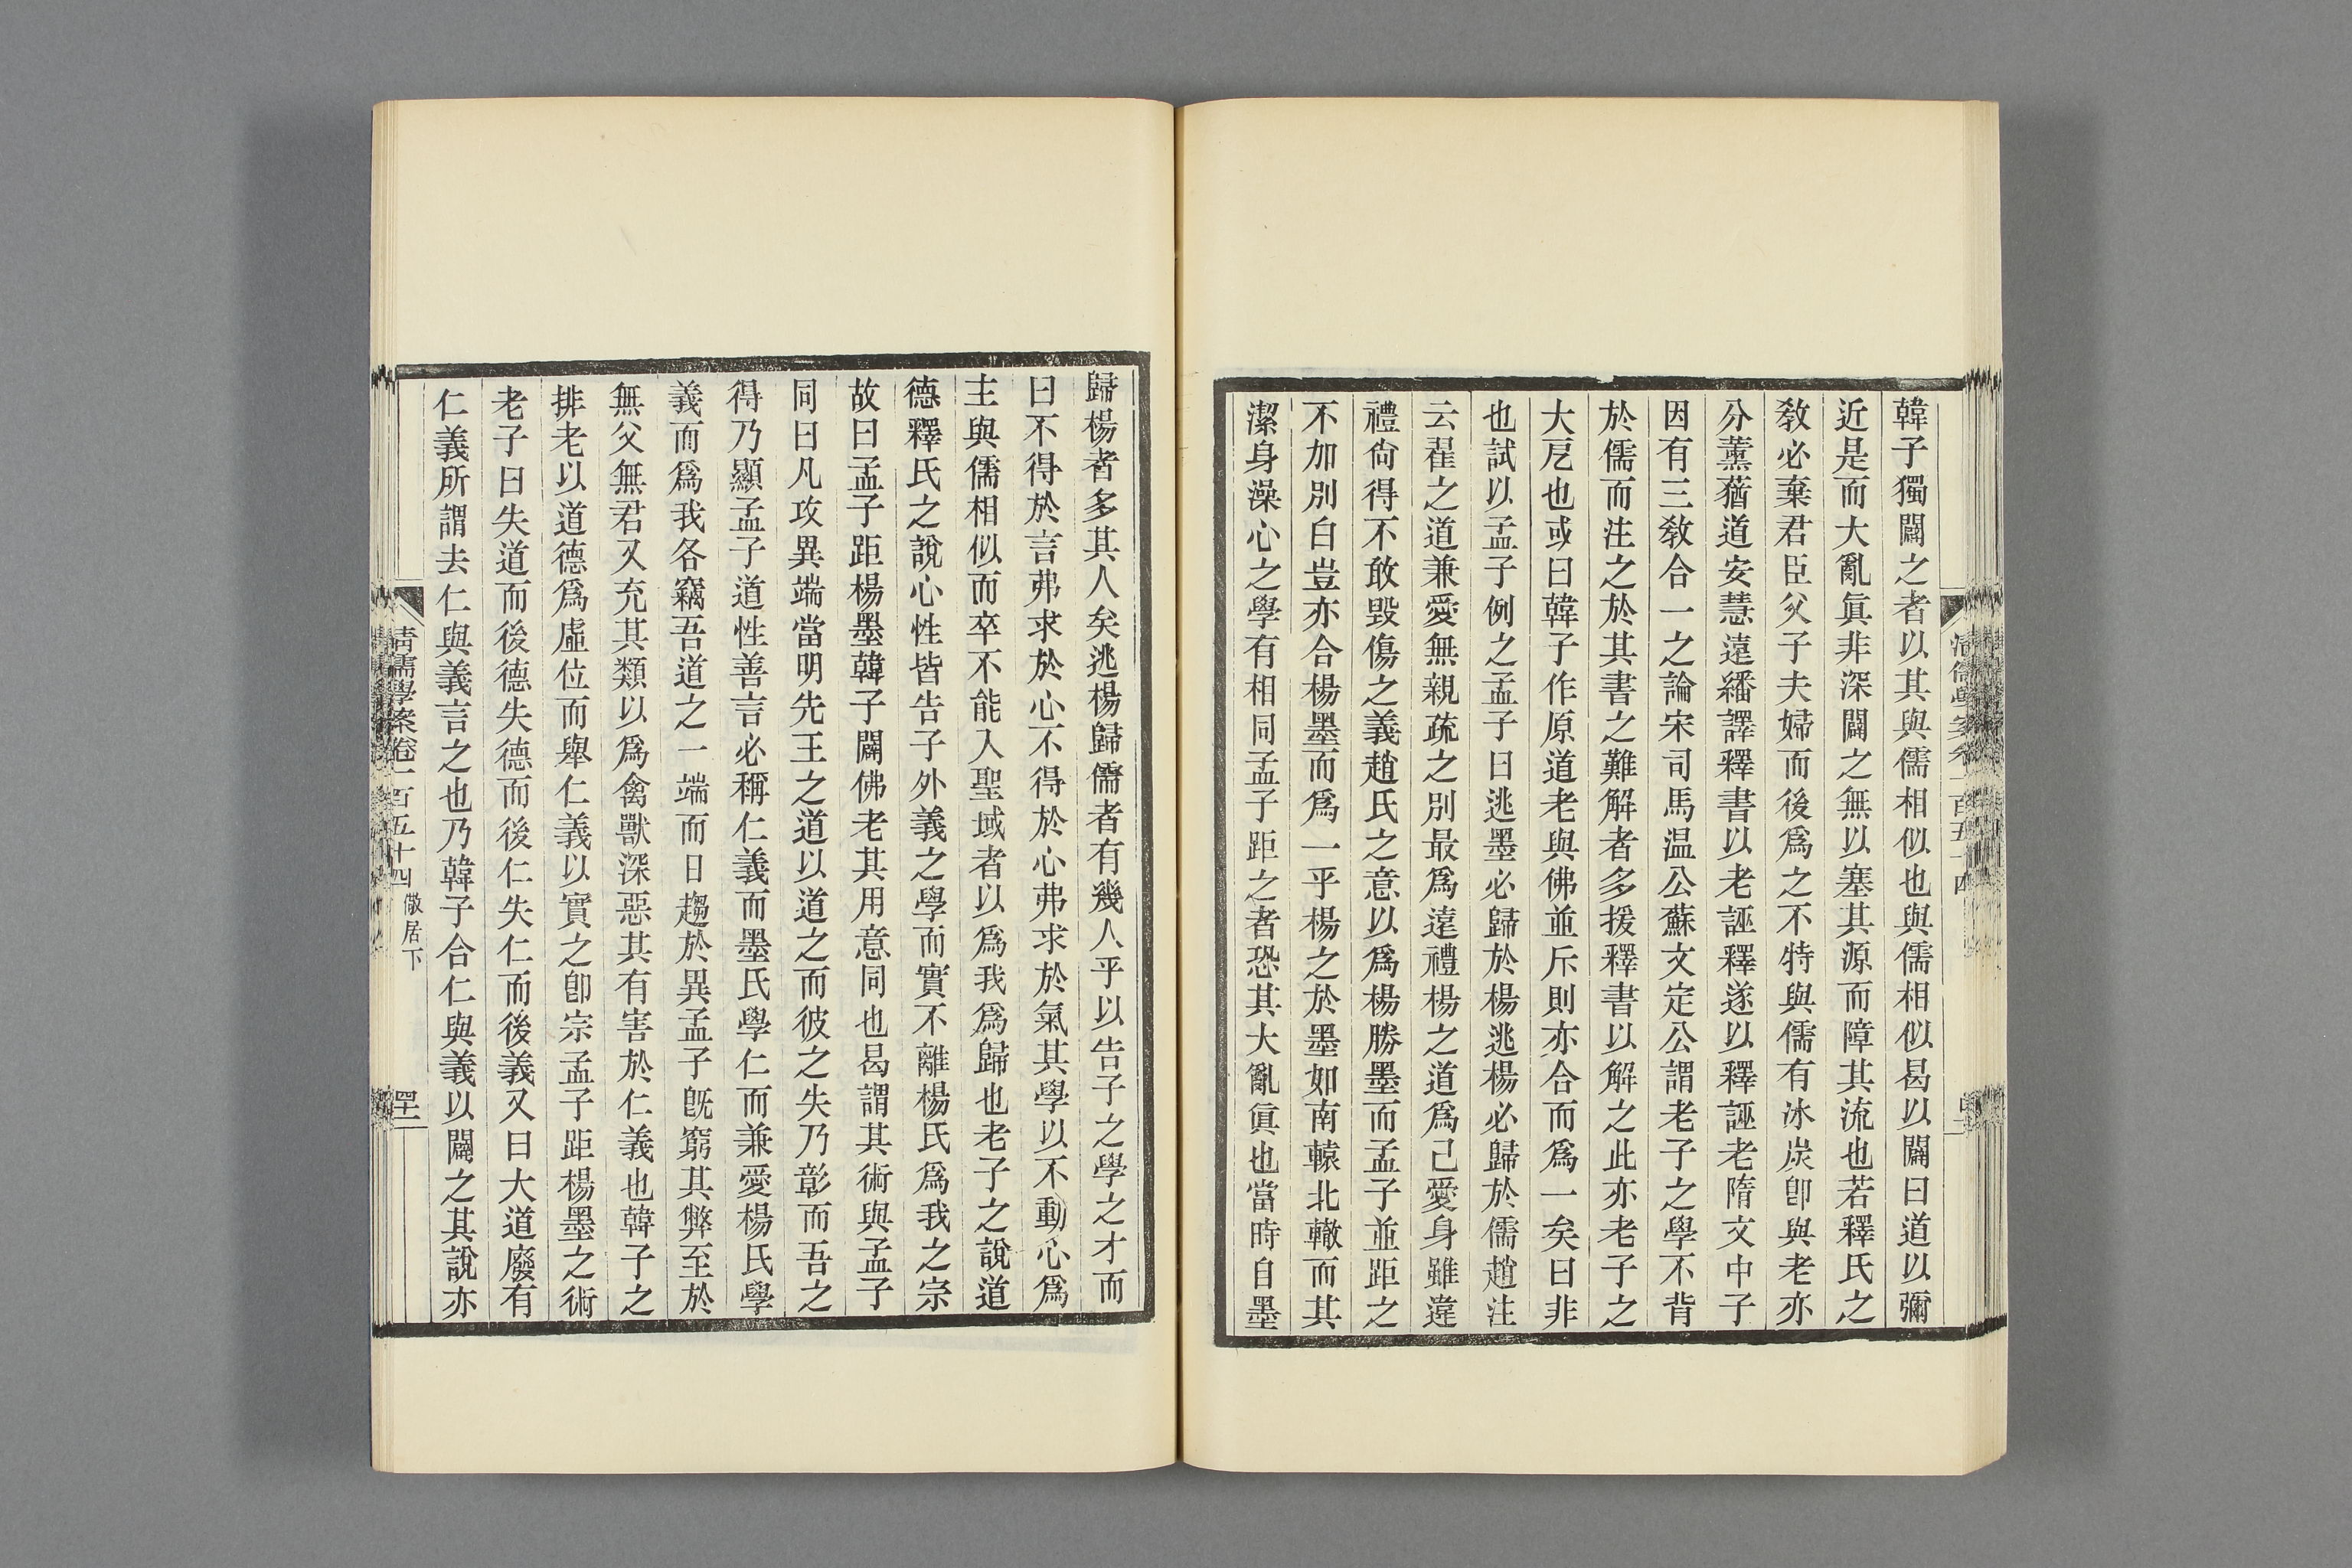 韓子獨闢之者以其與儒相似也與儒相似曷以闢曰道以彌
近是而大亂眞非深闢之無以塞其源而障其流也若釋氏之
敎必棄君臣父子夫婦而後爲之不特與儒有冰炭卽與老亦
分薰蕕道安慧遠繙譯釋書以老誣釋遂以釋誣老隋文中子
因有三敎合一之論宋司馬温公蘇文定公謂老子之學不背
於儒而注之於其書之難解者多援釋書以解之此亦老子之
大戹也或曰韓子作原道老與佛並斥則亦合而爲一矣曰非
也試以孟子例之孟子曰逃墨必歸於楊逃楊必歸於儒趙注
云翟之道兼愛無親疏之別最爲違禮楊之道爲己愛身雖違
禮尙得不敢毀傷之義趙氏之意以爲楊勝墨而孟子並距之
不加別白豈亦合楊墨而爲一乎楊之於墨如南轅北轍而其
潔身澡心之學有相同孟子距之者恐其大亂眞也當時自墨
歸楊者多其人矣逃楊歸儒者有幾人乎以告子之學之才而
曰不得於言弗求於心不得於心弗求於氣其學以不動心爲
主與儒相似而卒不能入聖域者以爲我爲歸也老子之說道
德釋氏之說心性皆告子外義之學而實不離楊氏爲我之宗
故曰孟子距楊墨韓子闢佛老其用意同也曷謂其術與孟子
同曰凡攻異端當明先王之道以道之而彼之失乃彰而吾之
得乃顯孟子道性善言必稱仁義而墨氏學仁而兼愛楊氏學
義而爲我各竊吾道之一端而日趨於異孟子旣窮其弊至於
無父無君又充其類以爲禽獸深惡其有害於仁義也韓子之
排老以道德爲虛位而舉仁義以實之卽宗孟子距楊墨之術
老子曰失道而後德失德而後仁失仁而後義又曰大道廢有
仁義所謂去仁與義言之也乃韓子合仁與義以闢之其說亦
清儒學案卷一百五十四 儆居下